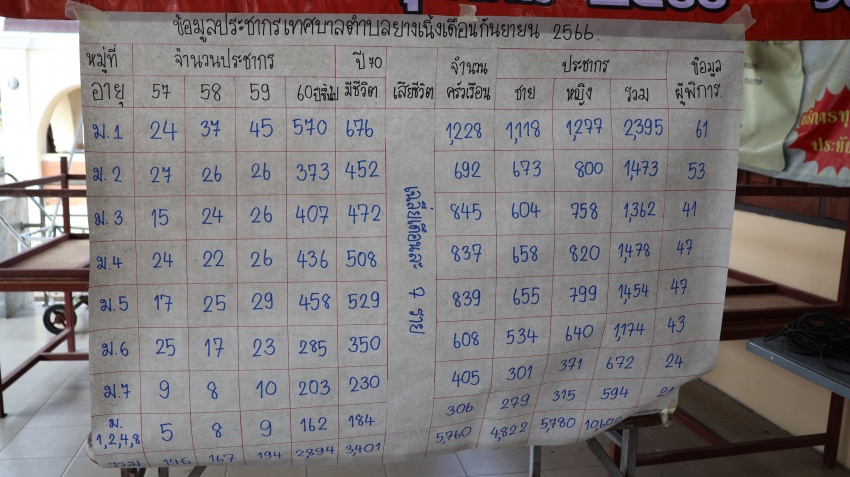 ข้อมูลประชากรเทศบาลตำบลยางเนิ้งเดือนกันยายน 2566
หมู่ที่ จำนวนประชากร ปี 70 จำนวน ประชากร ข้อมูล
อายุ 57 58 59 60ปีขึ้นไป มีชีวิต เสียชีวิต ครัวเรือน ชาย หญิง รวม ผู้พิการ.
ม.1 24 37 45 570 676 1,228 1,118 1,277 2,395 61
ม.2 27 26 26 373 452 692 673 800 1,473 53
ม.3 15 24 26 407 472 845 604 758 1,362 41
ม.4 24 22 26 436 508 837 658 820 1,478 47
ม.5 17 25 29 458 529 839 655 799 1,454 47
ม.6 25 17 23 285 350 608 534 640 1,174 43
ม.7 9 8 10 203 230 405 301 371 672 24
ม. 1,2,4,8 5 8 9 162 184 306 279 315 594
รวม 146 167 194 2,894 3,401 5,760 4,822 5,780
เฉลี่ยเดือนละ 7 ราย